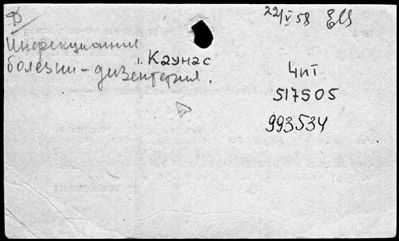 Д
22/V 58
Инфекционные
г. Каунас
болезни - дизентерия.
4пТ
517505
993534